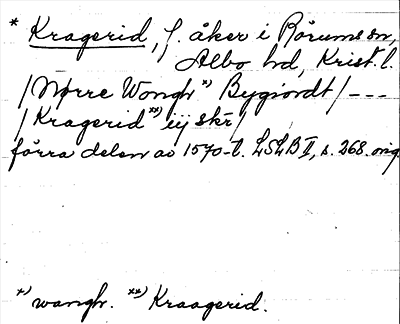 * Kragerid, f. åker i Rörums sn,
Albo hd, Krist. l.
/Nørre Wongh *) Bygiordt/ ---
/Kragerid **) iij skr/
förra delen av 1570-t. LSLB II, s. 268. orig.
*) wangh. **) Kraagerid.